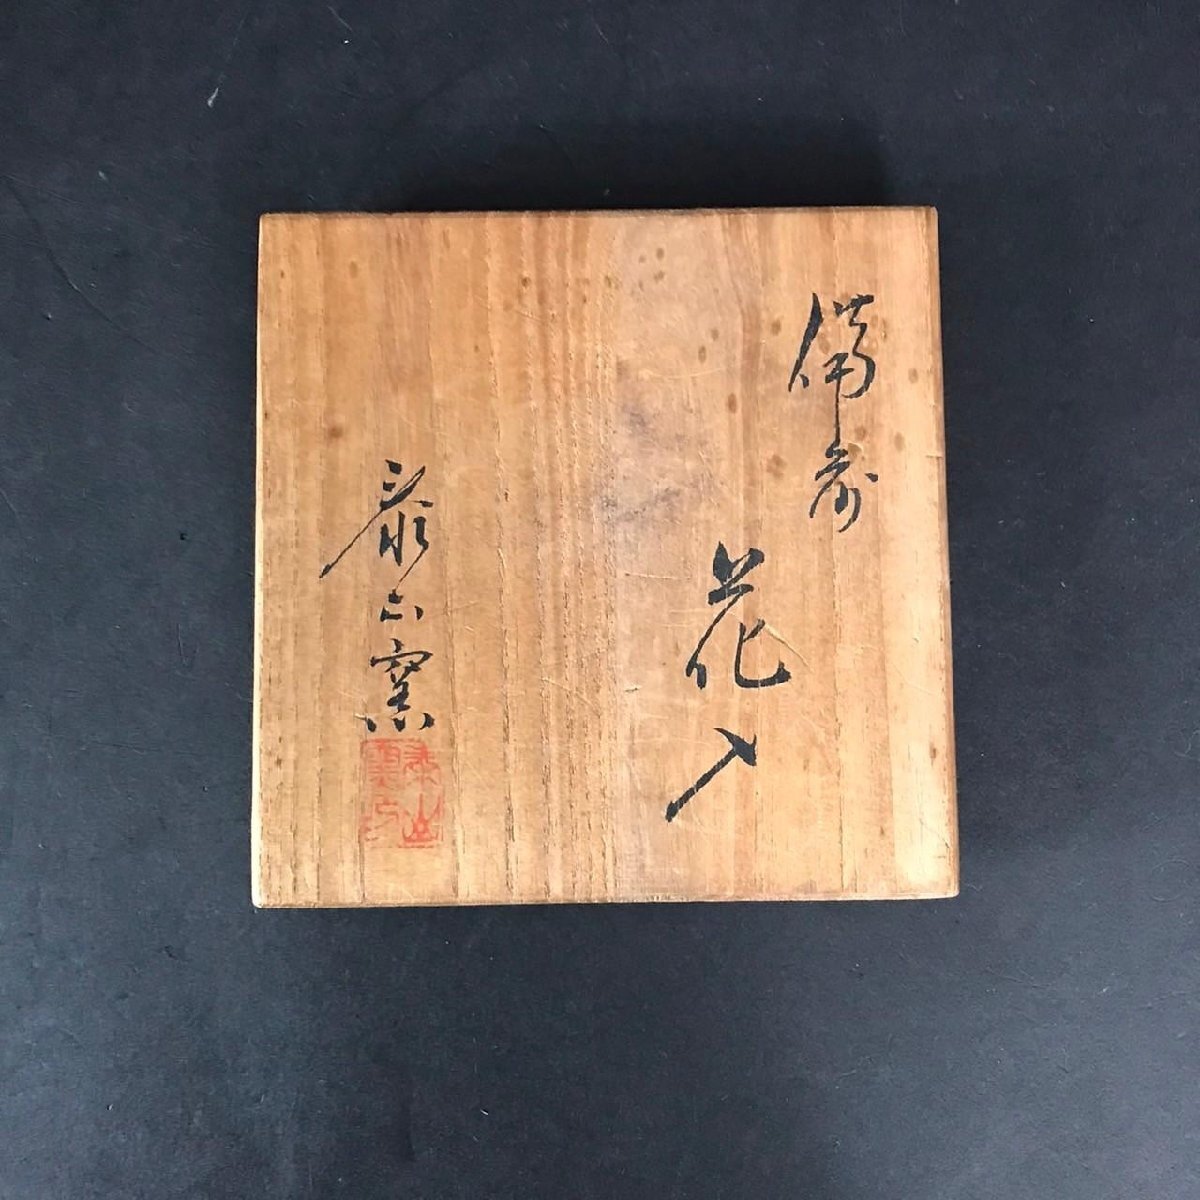 備前
花入
泰山窯